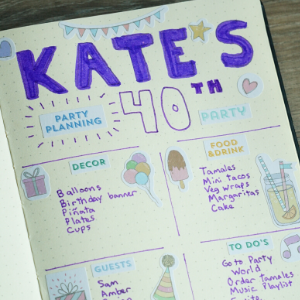 KATE'S
40TH
PARTY
PLANNING
PARTY
DECOR
Balloons
Birthday banner
Piñata
Plates
Cups
FOOD
&DRINK
Tamales
Mini tacos
Veg wraps
Margaritas
Cake
GUESTS
Sam
Amber
TO DO'S
Go to Party
World
Order tamales
Music Playlist